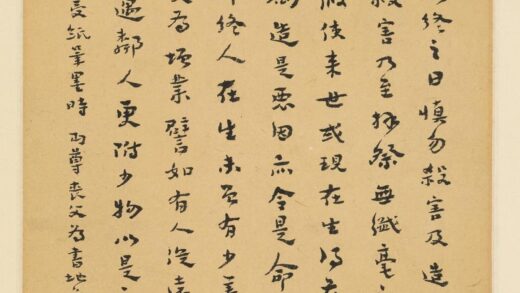 終之日慎勿殺害及造
殺害乃至拜祭無纖毫
假使来世或現在生得
造是惡因亦令是命
終人在生未曾有少善
為增業譬如有人從遠
遇鄰人更附少物以是
紙筆墨時 丏尊喪父為書地